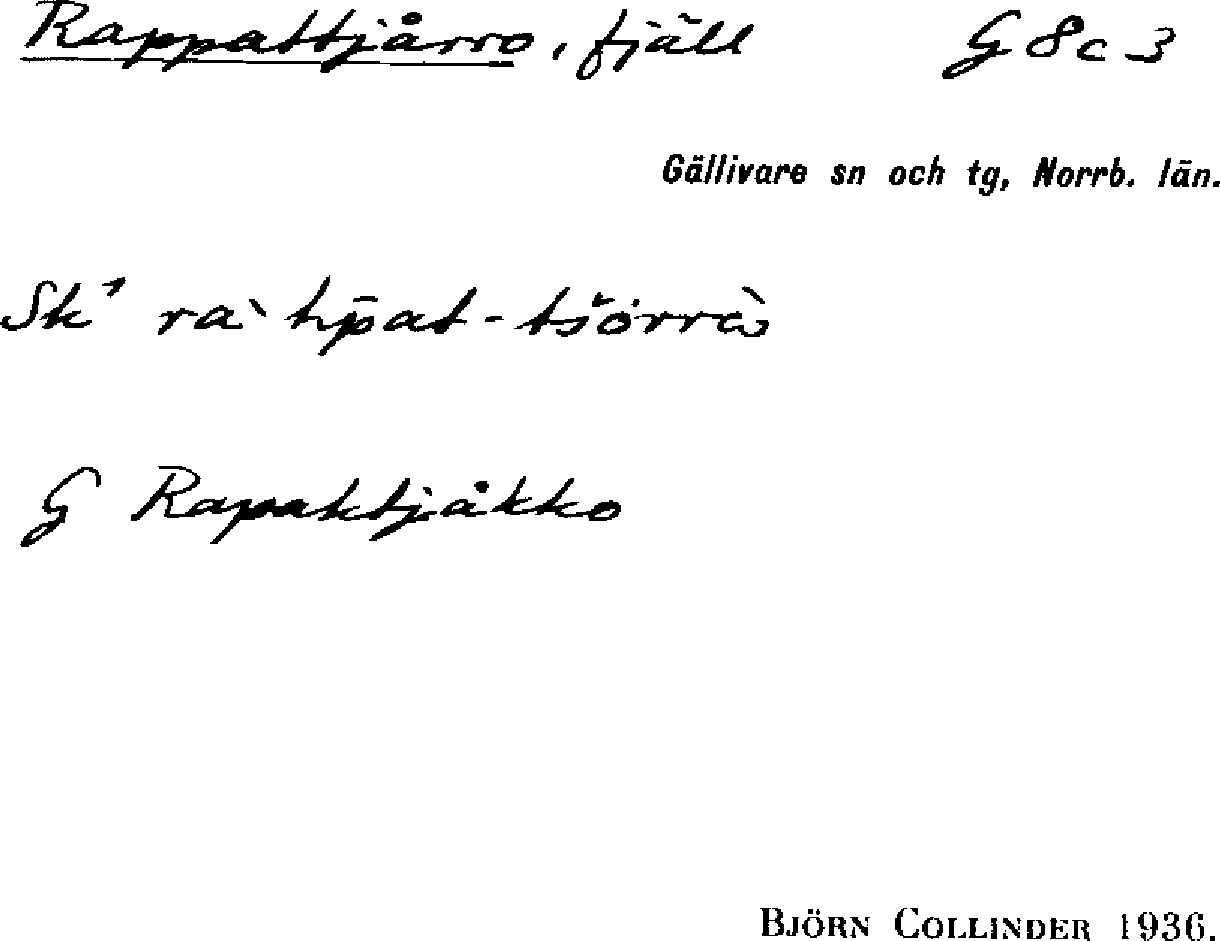 Rappattjårro, fjäll G 8 c 3
Gällivare sn och tg, Norrb. län.
Sk¹ ra`hp̄at-tšorrὰ
G Rapaktjåkko
BJÖRN COLLINDER 1936.